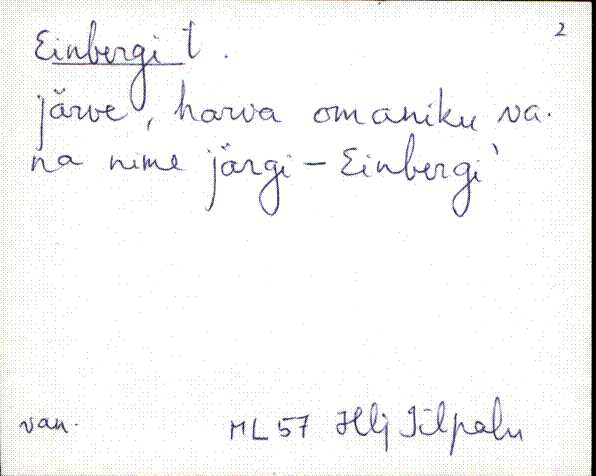 2
Einbergi t.
järve, harva omaniku va-
na nime järgi – Einbergi`
van.
ML 57 Hlj Tilpalu